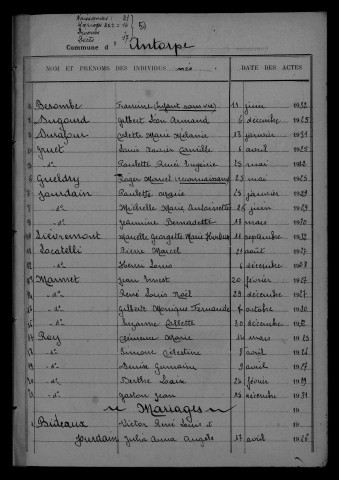 Naissances : 21
Mariages
Divorces
Décès : 17
Commune d' Antorpe
NOM ET PRÉNOMS DES INDIVIDUS nés DATE DES ACTES
Besombe Francine (enfant sans vie) 11 juin 1932
Dugoud Gilbert Léon Armand 6 décembre 1925
Colette Marie Mélanie 13 janvier 1931
Louis Xavier Camille 6 avril 1925
- d° - Paulette Renée Eugénie 25 mai
Roger Marcel (reconnaissance) 25 mai 1925
Jourdain Paulette Marie 25 janvier 1929
- d° - Michelle Marie Antoinette 26 juin 1929
- d° - Jeannine Bernadette 18 mars 1930
Lièvremont Marcelle Georgette Marie 11 septembre 1932
Locatelli Pierre Marcel 21 août 1927
- d° - Henri Louis 6 décembre 1928
Marmet Jean Ernest 20 février 1927
- d° - René Louis Noël 29 décembre 1927
- d° - Gilbert Monique Fernande 7 octobre 1930
- d° - Suzanne Collette 30 décembre
Roy Germaine Marie 14 mars
- d° - Simone Célestine 8 avril 1926
- d° - Denise Germaine 9 avril 1927
- d° - Berthe 23 février 1929
- d° - Gaston Jean 15 décembre 1931
Mariages
Bideaux Victor René Louis &
Jourdain Julia Anna Angèle 17 avril 1926